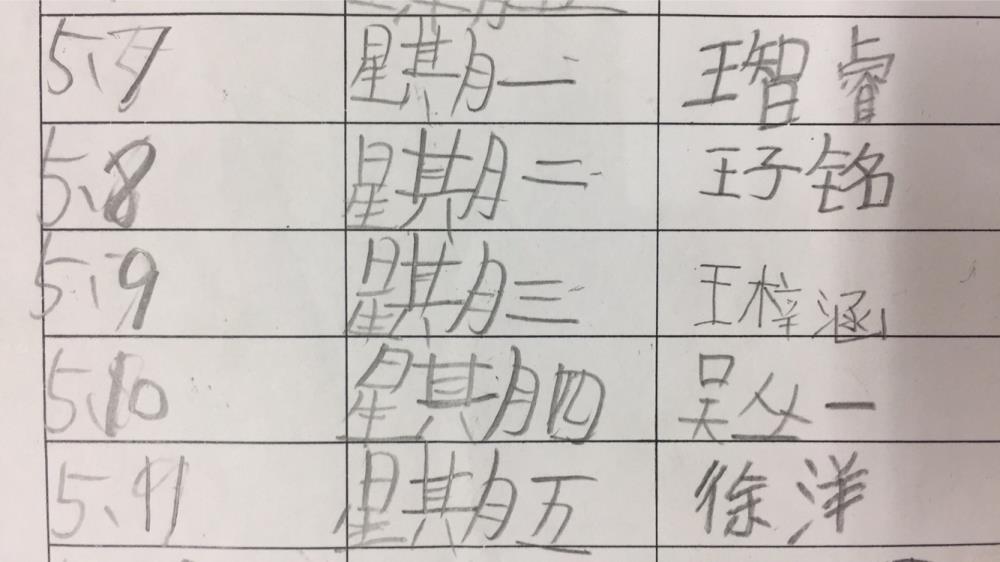 5、7 星期一 王智睿
5、8 星期二 王子铭
5、9 星期三 王梓涵
5、10 星期四 吴一
5、11 星期五 徐洋